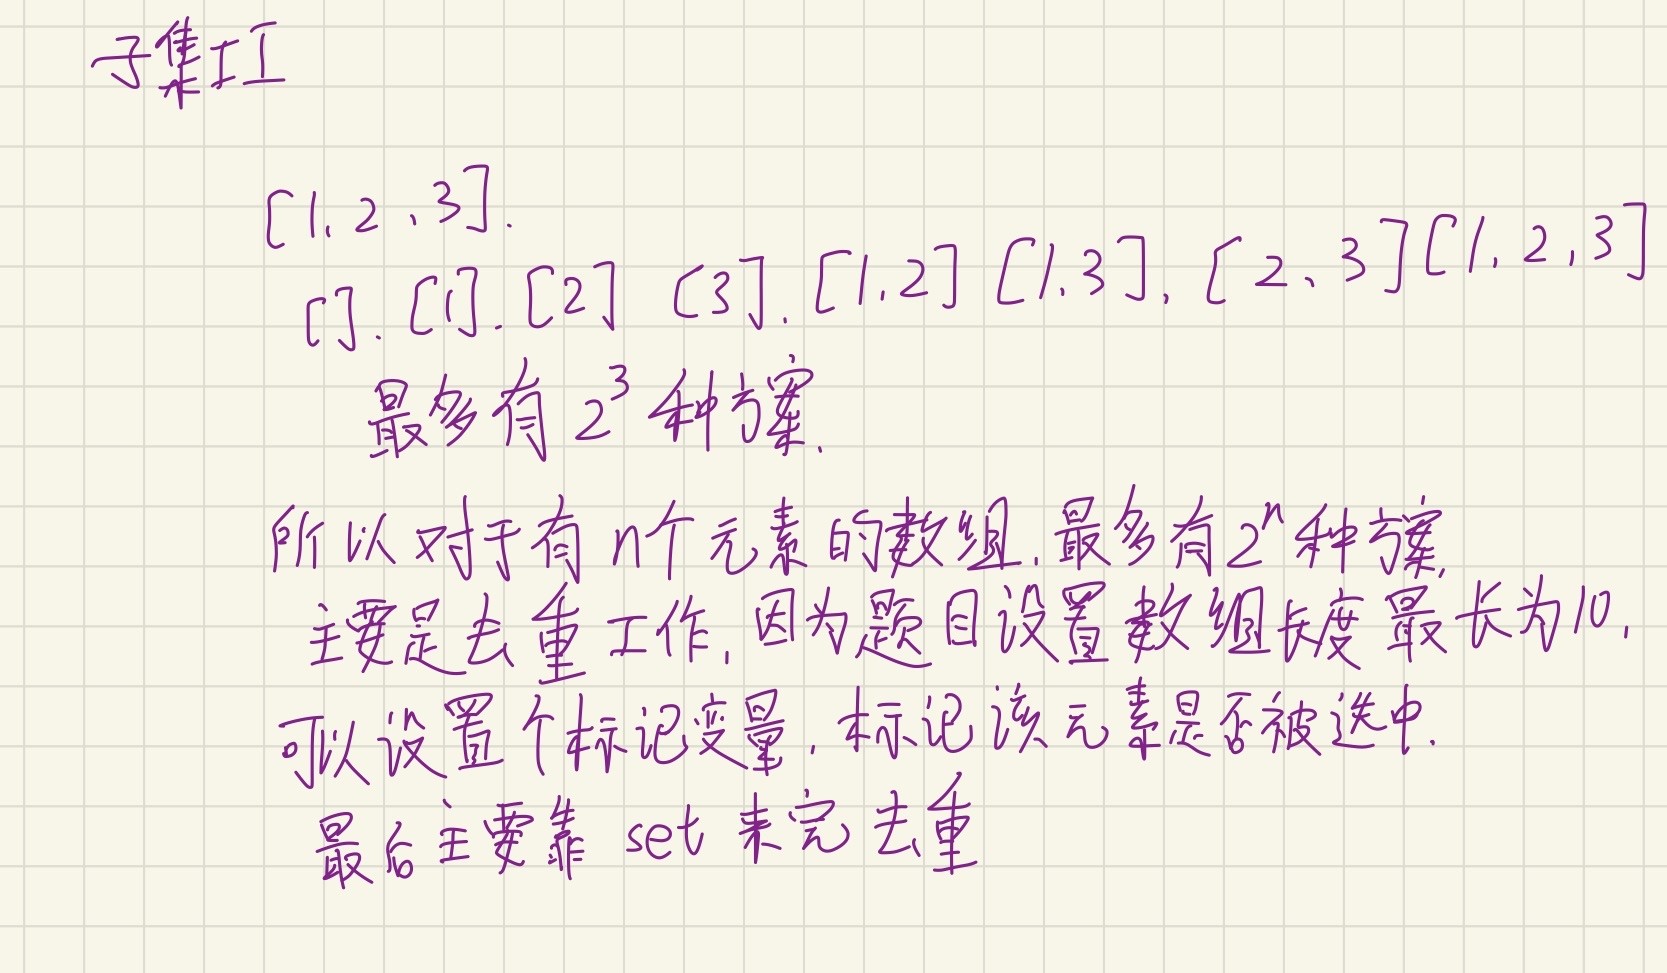 子集II
[1,2,3].
[].[1].[2] [3].[1,2] [1,3].[2,3][1,2,3]
最多有 2³ 种方案.
所以对于有 n个元素的数组.最多有2ⁿ种方案.
主要是去重工作.因为题目设置数组长度最长为10.
可以设置个标记变量.标记该元素是否被选中.
最后主要靠 set 来完去重